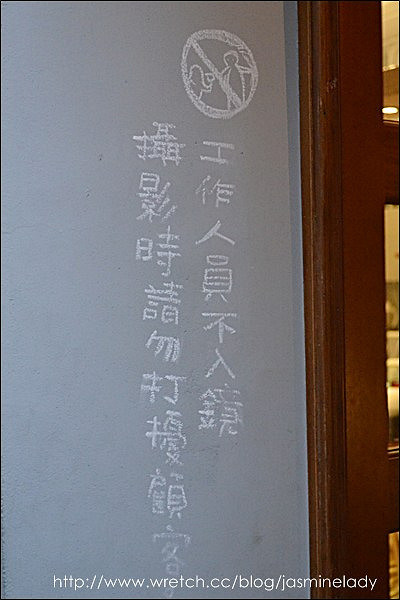 工作人員不入鏡
攝影時請勿打擾顧客
http://www.wretch.cc/blog/jasminelady